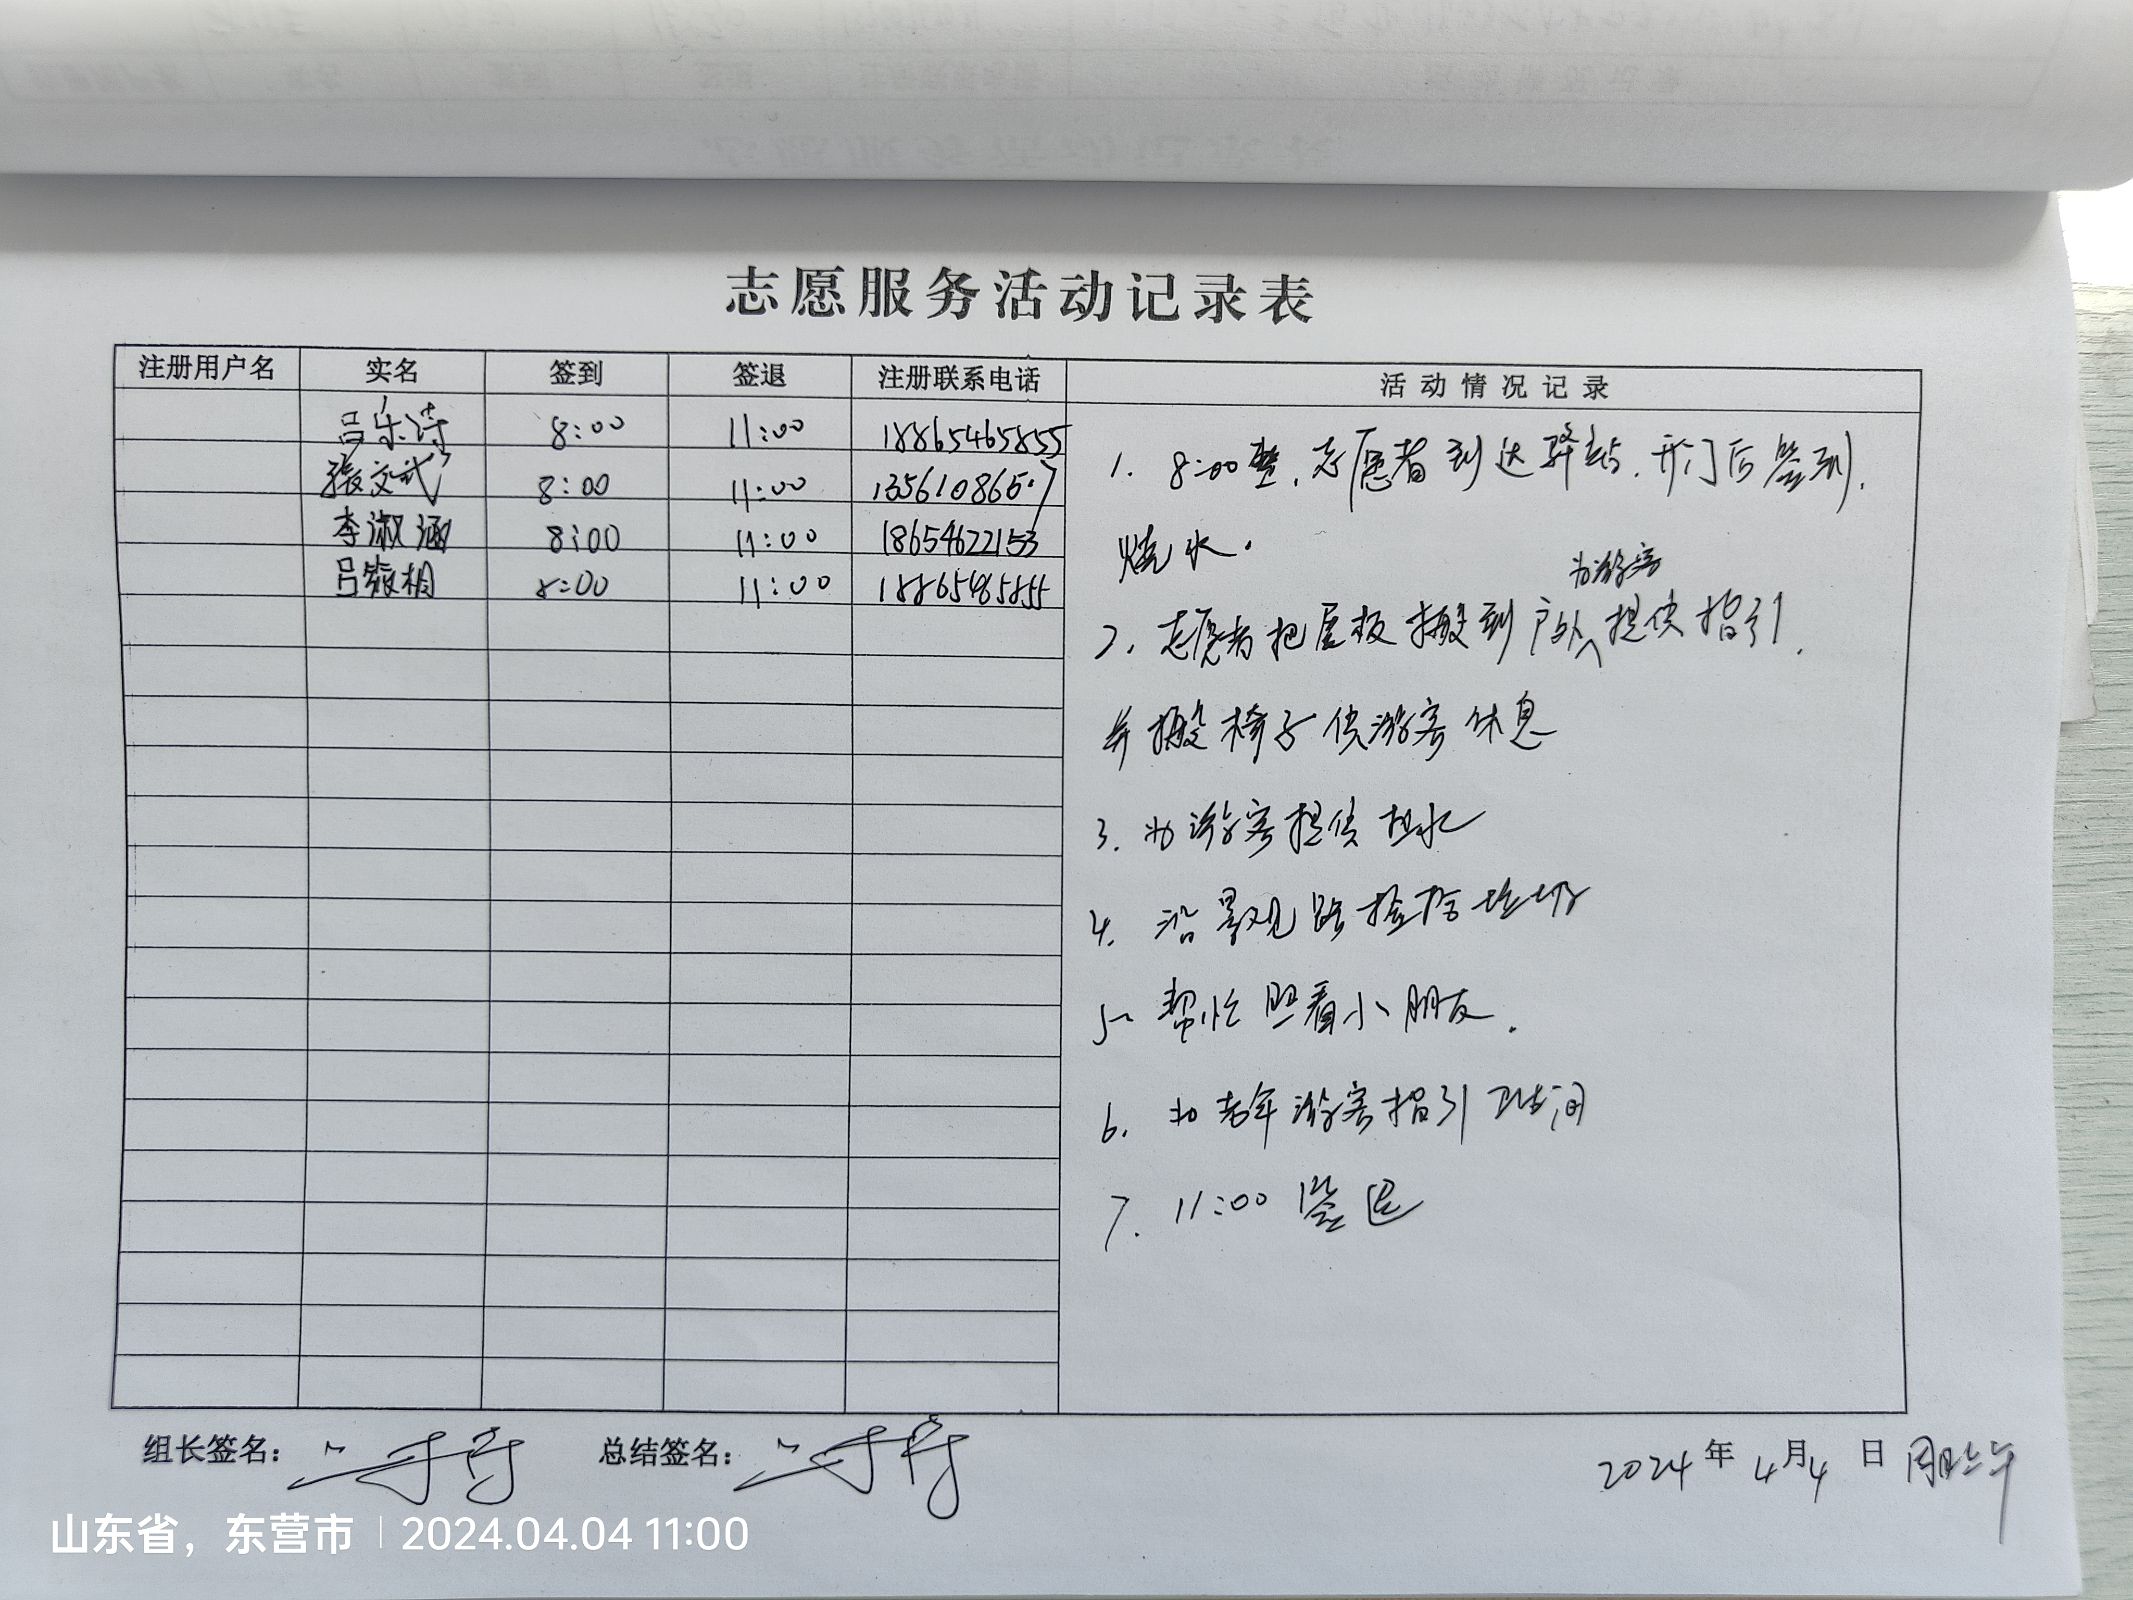 志愿服务活动记录表
注册用户名 实名 签到 签退 注册联系电话 活动情况记录
吕乐诗 8:00 11:00 18865465855
张文武 8:00 11:00
李淑涵 8:00 11:00 18654622153
吕 相 8:00 11:00 18865465855
1. 8:00整,志愿者到达驿站,开门后签到,
烧水.
为游客
2. 志愿者把展板搬到户外提供指引.
并搬椅子供游客休息
3. 为游客提供热水
4. 沿景观路捡拾垃圾
5. 帮忙照看小朋友.
6. 为老年游客指引卫生间
7. 11:00 签退
组长签名: 总结签名: 2024年4月4日 上午
山东省,东营市 | 2024.04.04 11:00